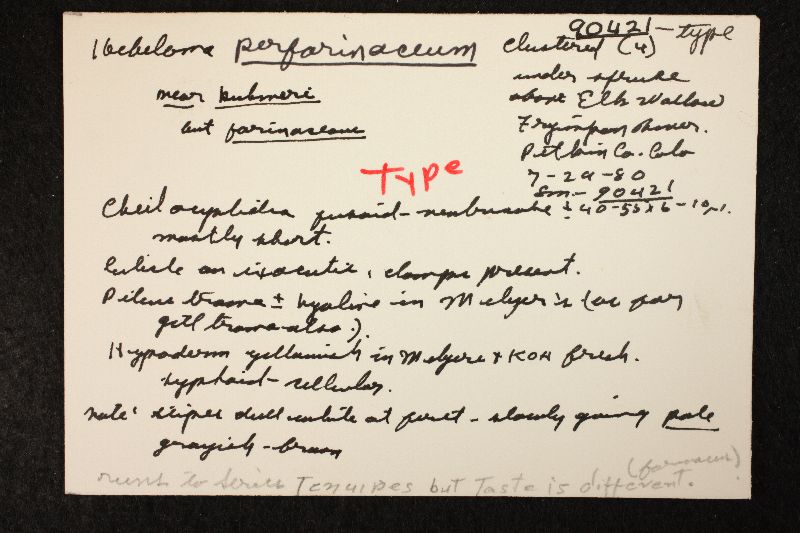 90421 - type
Hebeloma perfarinaceum
Clustered (4)
under spruce
near kuhneri
above Elk Wallow
but farinaceous
Fryingpan River.
Pitkin Co. Colo
Type
7-29-80
Sm- 90421
Cheilocystidia fusoid-ventricose ± 40-55 x 6-10 µ.
mostly short.
Cuticle an ixocutis, clamps present.
Pileus trama ± hyaline in Melzer's (as for
gill trama also).
Hypoderm yellowish in Melzers + KOH fresh.
hyphoid-cellular.
note: stipes dull white at first - slowly going pale
grayish-brown
runs to series Tenuipes but Taste is different.